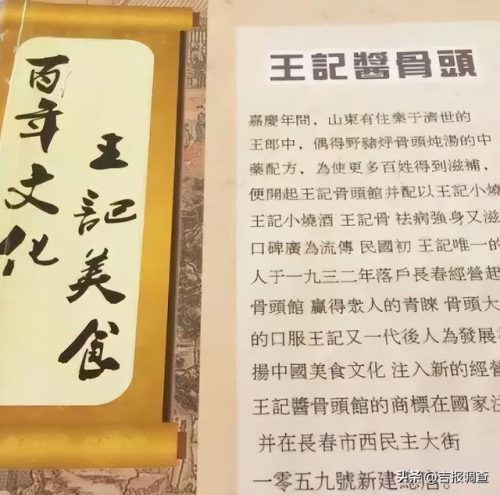 百年文化
王記美食
王記醬骨頭
嘉慶年間，山東有住樂于濟世的
王郎中，偶得野豬烀骨頭炖湯的中
藥配方，為使更多百姓得到滋補，
便開起王記骨頭館并配以王記小燒
王記小燒酒 王記骨 祛病強身又滋
口碑廣為流傳 民國初 王記唯一的
人于一九三二年落戶長春經營起
骨頭館 贏得衆人的青睞 骨頭大
的口服王記又一代後人為發展
揚中國美食文化 注入新的經營
王記醬骨頭館的商標在國家注
并在長春市西民主大街
一零五九號新建總店。
头条 @吉报调查